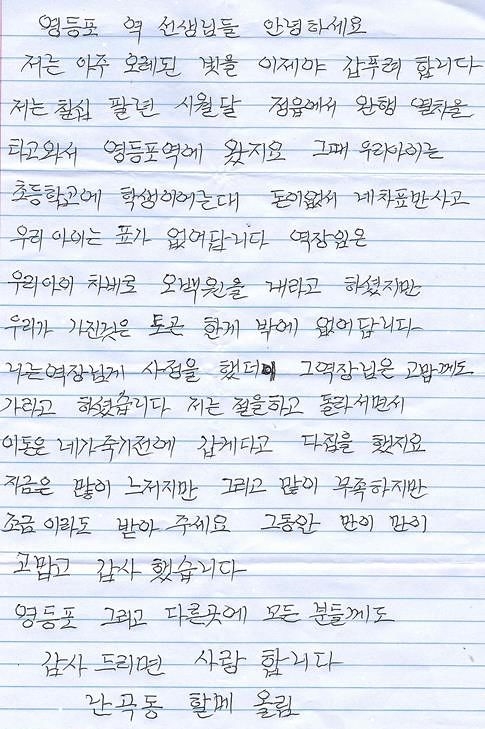 영등포 역 선생님들 안녕하세요
저는 아주 오레된 빚을 이제야 갑푸려 합니다
저는 칠십 팔년 시월달 정읍에서 완행 열차을
타고와서 영등포역에 왔지요 그때 우리아이는
초등학교에 학생이어는대 돈이없서 네차표만사고
우리 아이는 표가 없어답니다 역장임은
우리아이 차비로 오백원을 내라고 하셨지만
우리가 가진것은 토곤 한게 밖에 없어답니다
나는역장님게 사정을 했더니 그역장님은 고맙께도
가라고 하셨습니다 저는 절을하고 돌라서면서
이돈은 네가죽기전에 갑게다고 다짐을 했지요
지금은 많이 느저지만 그리고 많이 부족하지만
조금 이라도 받아 주세요 그동안 만이 만이
고맙고 감사 했습니다
영등포 그리고 다른곳에 모든 분들께도
감사 드리면 사랑 합니다
난곡동 할메 올림